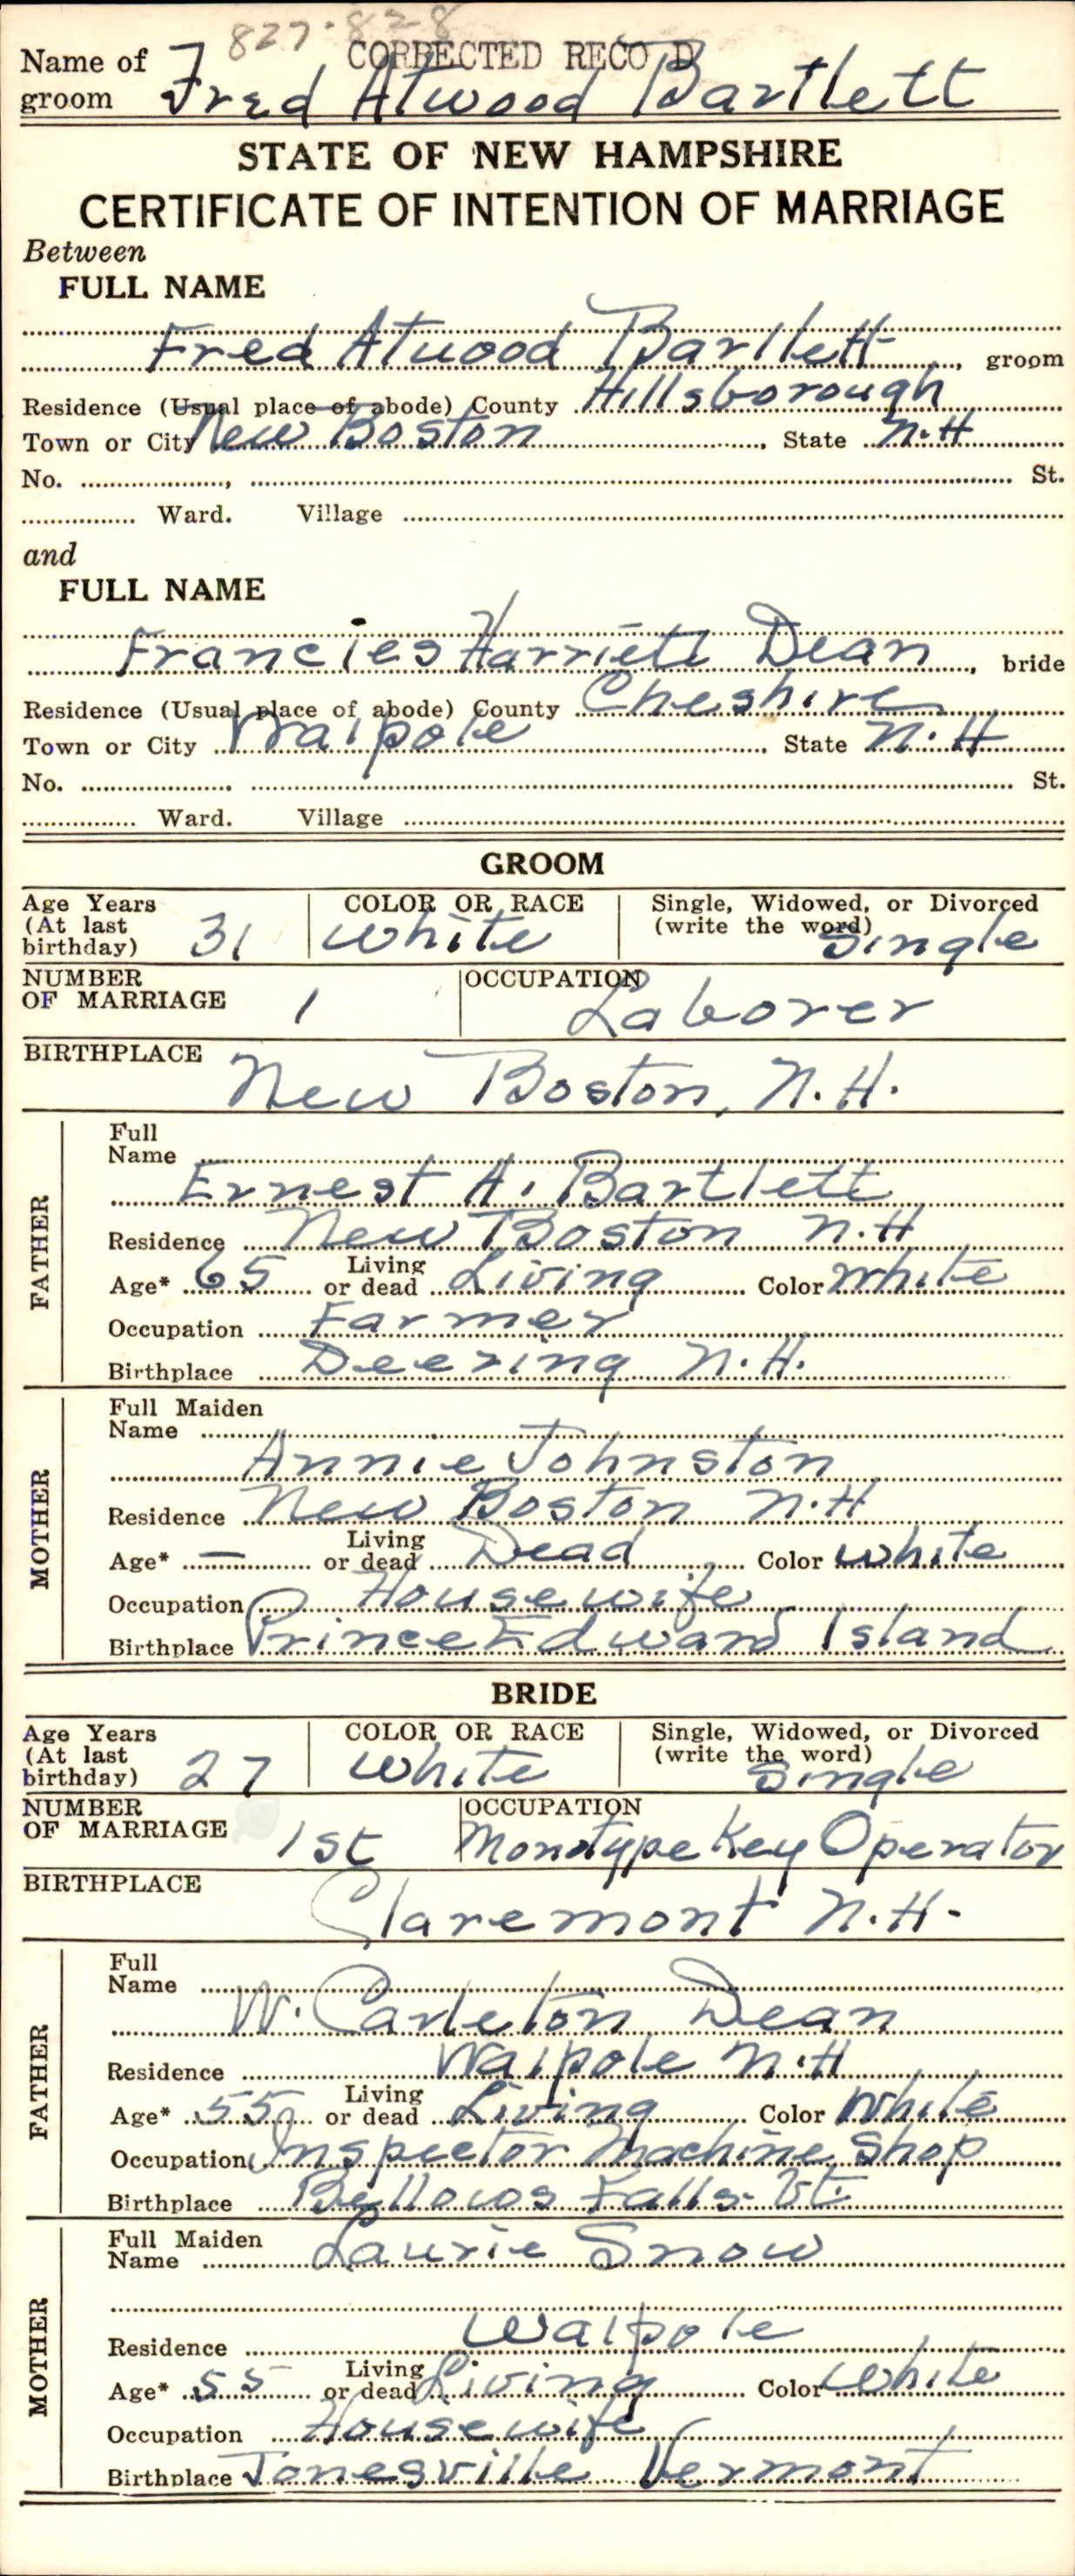 827-828
CORRECTED RECO D
Name of groom Fred Atwood Bartlett
STATE OF NEW HAMPSHIRE
CERTIFICATE OF INTENTION OF MARRIAGE
Between
FULL NAME
Fred Atwood Bartlett, groom
Residence (Usual place of abode) County Hillsborough
Town or City New Boston, State N.H
No. , St.
Ward. Village
and
FULL NAME
Francies Harriett Dean, bride
Residence (Usual place of abode) County Cheshire
Town or City Walpole. State N.H
No. St.
Ward. Village
GROOM
Age Years (At last birthday) 31 COLOR OR RACE white Single, Widowed, or Divorced (write the word) Single
NUMBER OF MARRIAGE 1 OCCUPATION Laborer
BIRTHPLACE New Boston, N.H.
FATHER
Full Name
Ernest A. Bartlett
Residence New Boston N.H
Age* 65 Living or dead Living Color White
Occupation Farmer
Birthplace Deering N.H.
MOTHER
Full Maiden Name
Annie Johnston
Residence New Boston N.H
Age* — Living or dead Dead Color white
Occupation Housewife
Birthplace Prince Edward Island
BRIDE
Age Years (At last birthday) 27 COLOR OR RACE white Single, Widowed, or Divorced (write the word) Single
NUMBER OF MARRIAGE 1st OCCUPATION Monotype Key Operator
BIRTHPLACE Claremont N.H-
FATHER
Full Name
W. Carleton Dean
Residence Walpole N.H
Age* 55 Living or dead Living Color White
Occupation Inspector Machine Shop
Birthplace Bellows Falls- Vt.
MOTHER
Full Maiden Name Laurie Snow
Residence Walpole
Age* 55 Living or dead Living Color White
Occupation Housewife
Birthplace Jonesville Vermont